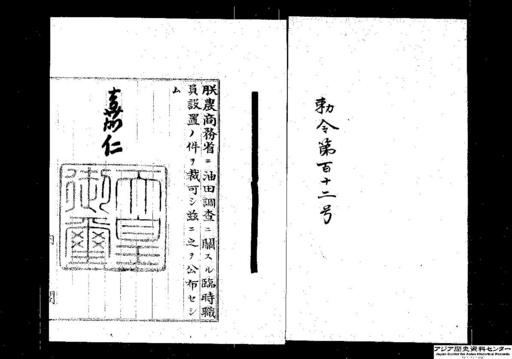 勅令第百十二号
朕農商務省ニ油田調査ニ關スル臨時職
員設置ノ件ヲ裁可シ玆ニ之ヲ公布セシ
ム
嘉仁
天皇
御璽
アジア歴史資料センター
Japan Center for Asian Historical Records